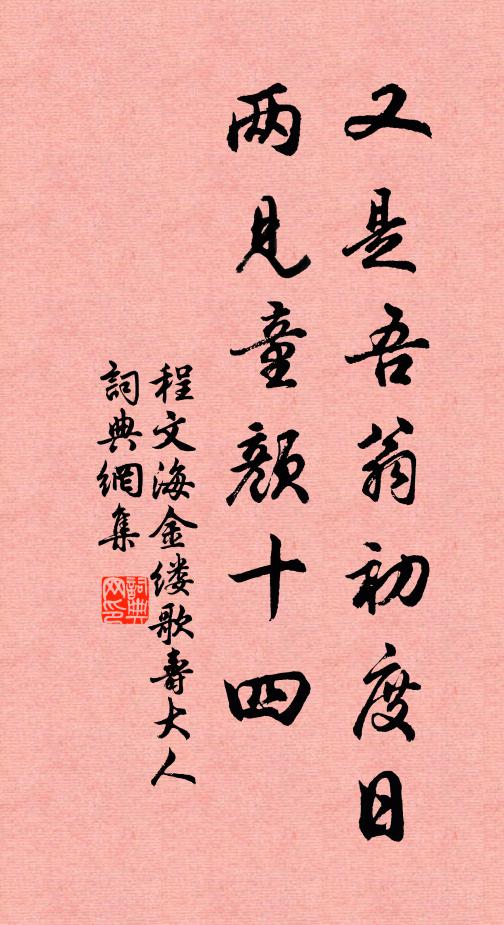 又是吾翁初度日
两见童颜十四
程文海金缕歌寿大人
詞典網集
詞典網印